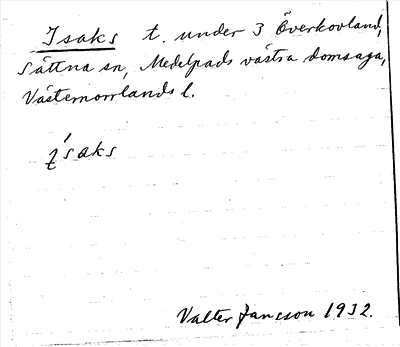 Isaks t. under 3 Överkovland,
Sättna sn, Medelpads västra domsaga,
Västernorrlands l.
ísaks
Valter Jansson 1932.